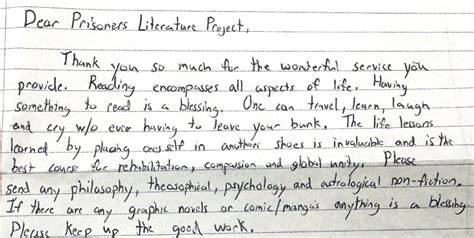 Dear Prisoners Literature Project,
Thank you so much for the wonderful service you
provide. Reading encompasses all aspects of life. Having
something to read is a blessing. One can travel, learn, laugh
and cry w/o ever having to leave your bunk. The life lessons
learned by placing oneself in another shoes is invaluable and is the
best course for rehabilitation, compassion and global unity. Please
send any philosophy, theosophical, psychology and astrological non-fiction.
If there are any graphic novels or comic/mangas anything is a blessing.
Please keep up the good work.